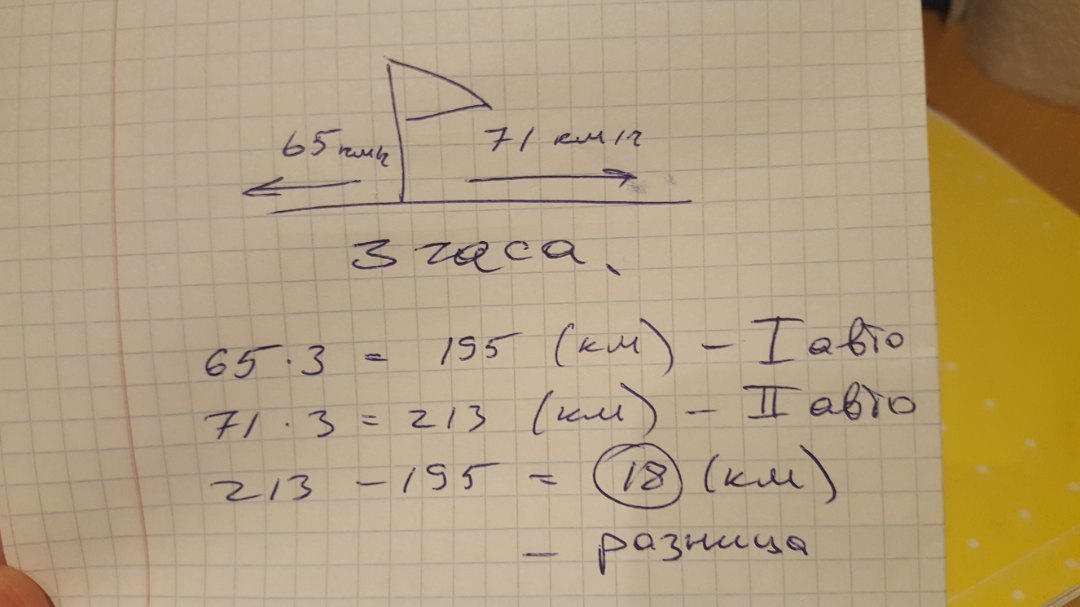 65 км/ч 71 км/ч
3 часа.
65 · 3 = 195 (км) - I авто
71 · 3 = 213 (км) - II авто
213 - 195 = 18 (км)
- разница